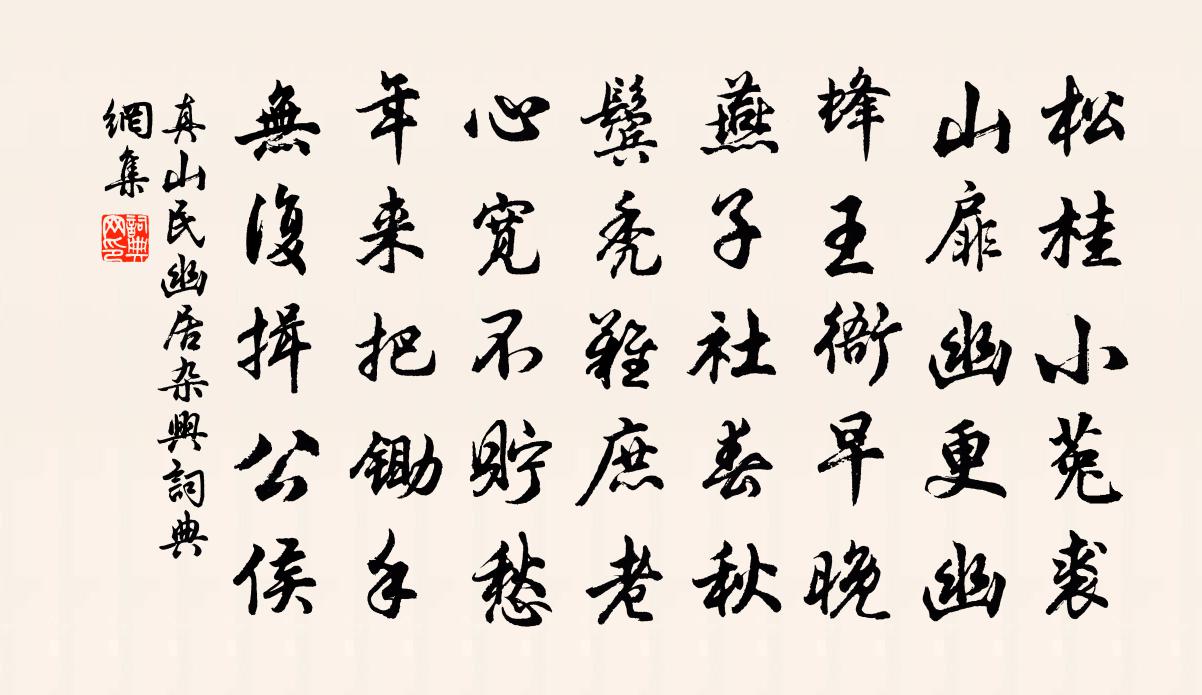 松桂小菟裘
山扉幽更幽
蜂王衙早晚
燕子社春秋
鬓秃难庶老
心宽不贮愁
年来把锄手
無復揖公侯
真山民幽居杂興詞典
網集
詞典
网印